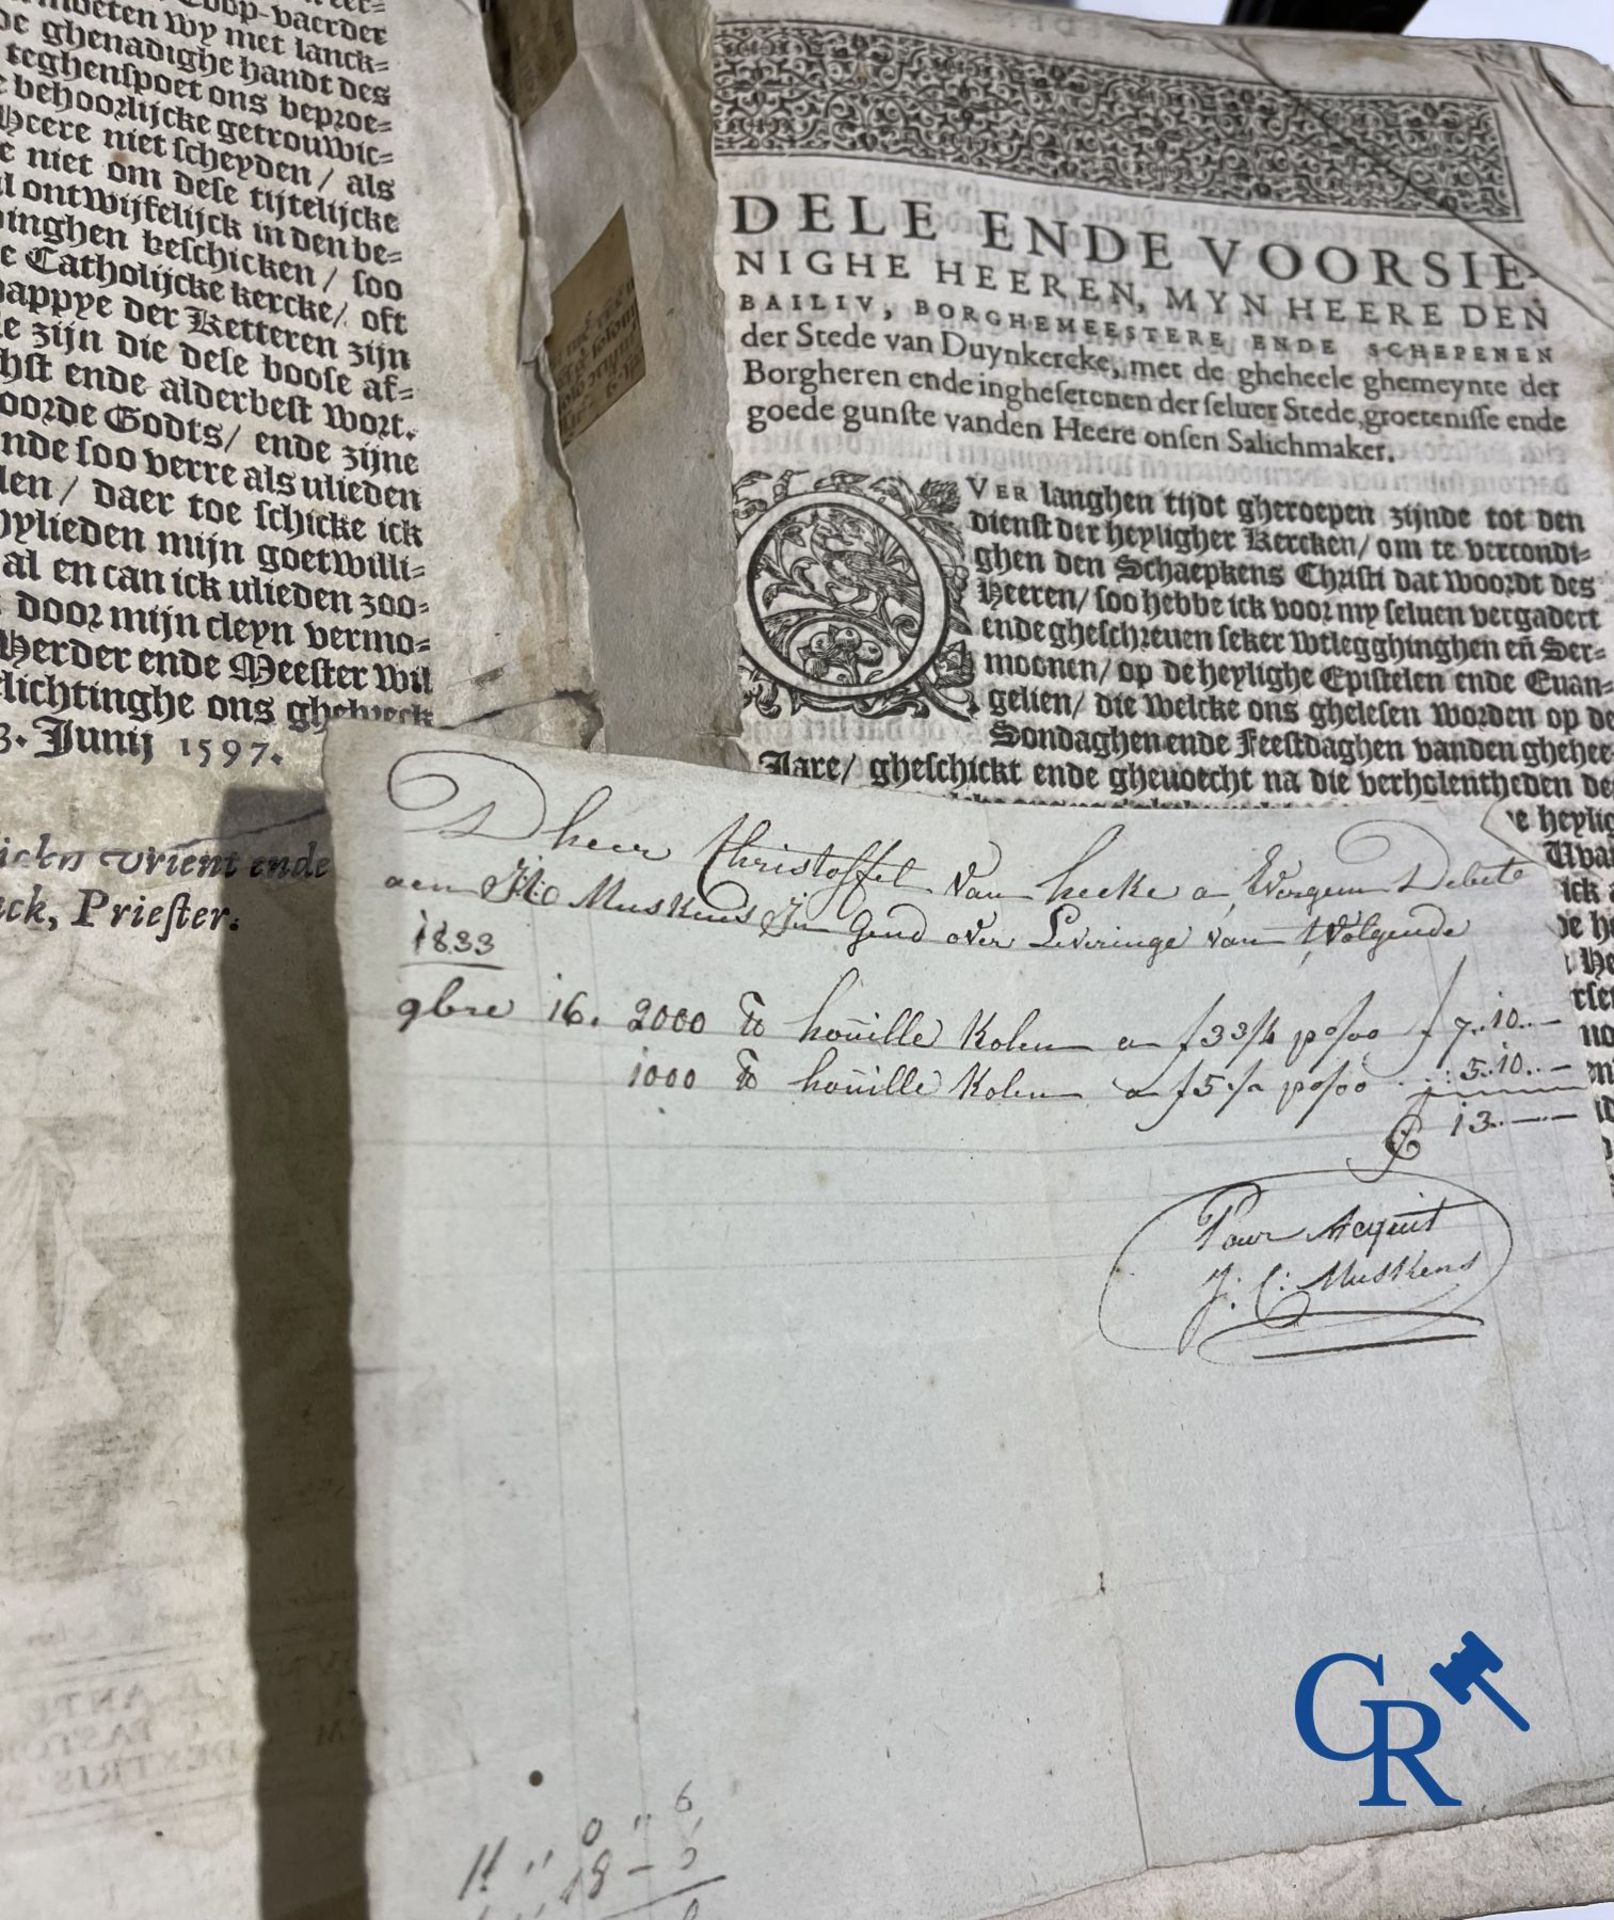 Coop-vaerder
moeten wy met lanck=
de ghenadighe handt des
teghenspoet ons beproe=
behoorlijcke getrouwic=
Heere niet scheyden / als
niet om dese tijtelijcke
ontwijfelijck in den be=
inghen beschicken / soo
e Catholijcke kercke / oft
happye der Ketteren zijn
le zijn die dese boose af=
hst ende alderbest wort.
oorde Godts / ende zijne
nde soo verre als ulieden
len / daer toe schicke ick
ylieden mijn goetwilli=
al en can ick ulieden zoo=
door mijn cleyn vermo=
Herder ende Meester wil
lichtinghe ons
3. Junij 1597.
vrient ende
ck, Priester.
DELE ENDE VOORSIE-
NIGHE HEEREN, MYN HEERE DEN
BAILIV, BORGHEMEESTERE ENDE SCHEPENEN
der Stede van Duynkercke, met de gheheele ghemeynte der
Borgheren ende inghesetenen der seluer Stede, groetenisse ende
goede gunste vanden Heere onsen Salichmaker.
OVER langhen tijdt gheroepen zijnde tot den
dienst der heyligher Kercken / om te vercondi=
ghen den Schaepkens Christi dat woordt des
Heeren / soo hebbe ick voor my seluen vergadert
ende gheschreuen seker wtlegghinghen eñ Ser=
moonen / op de heylighe Epistelen ende Euan=
gelien / die welcke ons ghelesen worden op de
Sondaghen ende Feestdaghen vanden ghehee
Jare / gheschickt ende gheuoecht na die verholentheden de
e heylig
ick
D'heer Christoffel Van hecke a Evergem Debet
aen J:C Muskens In Gend over Leveringe van 't Volgende
1833
9bre 16. 2000 ℔ houille Kolen a f 3 3/4 p o/oo f 7..10..—
1000 ℔ houille Kolen a f 5 ./. p o/oo . . : 5..10..—
13..—..—
Pour Acquit
J: C: Muskens
11 ,, 0 ,, 6
18 –
GR